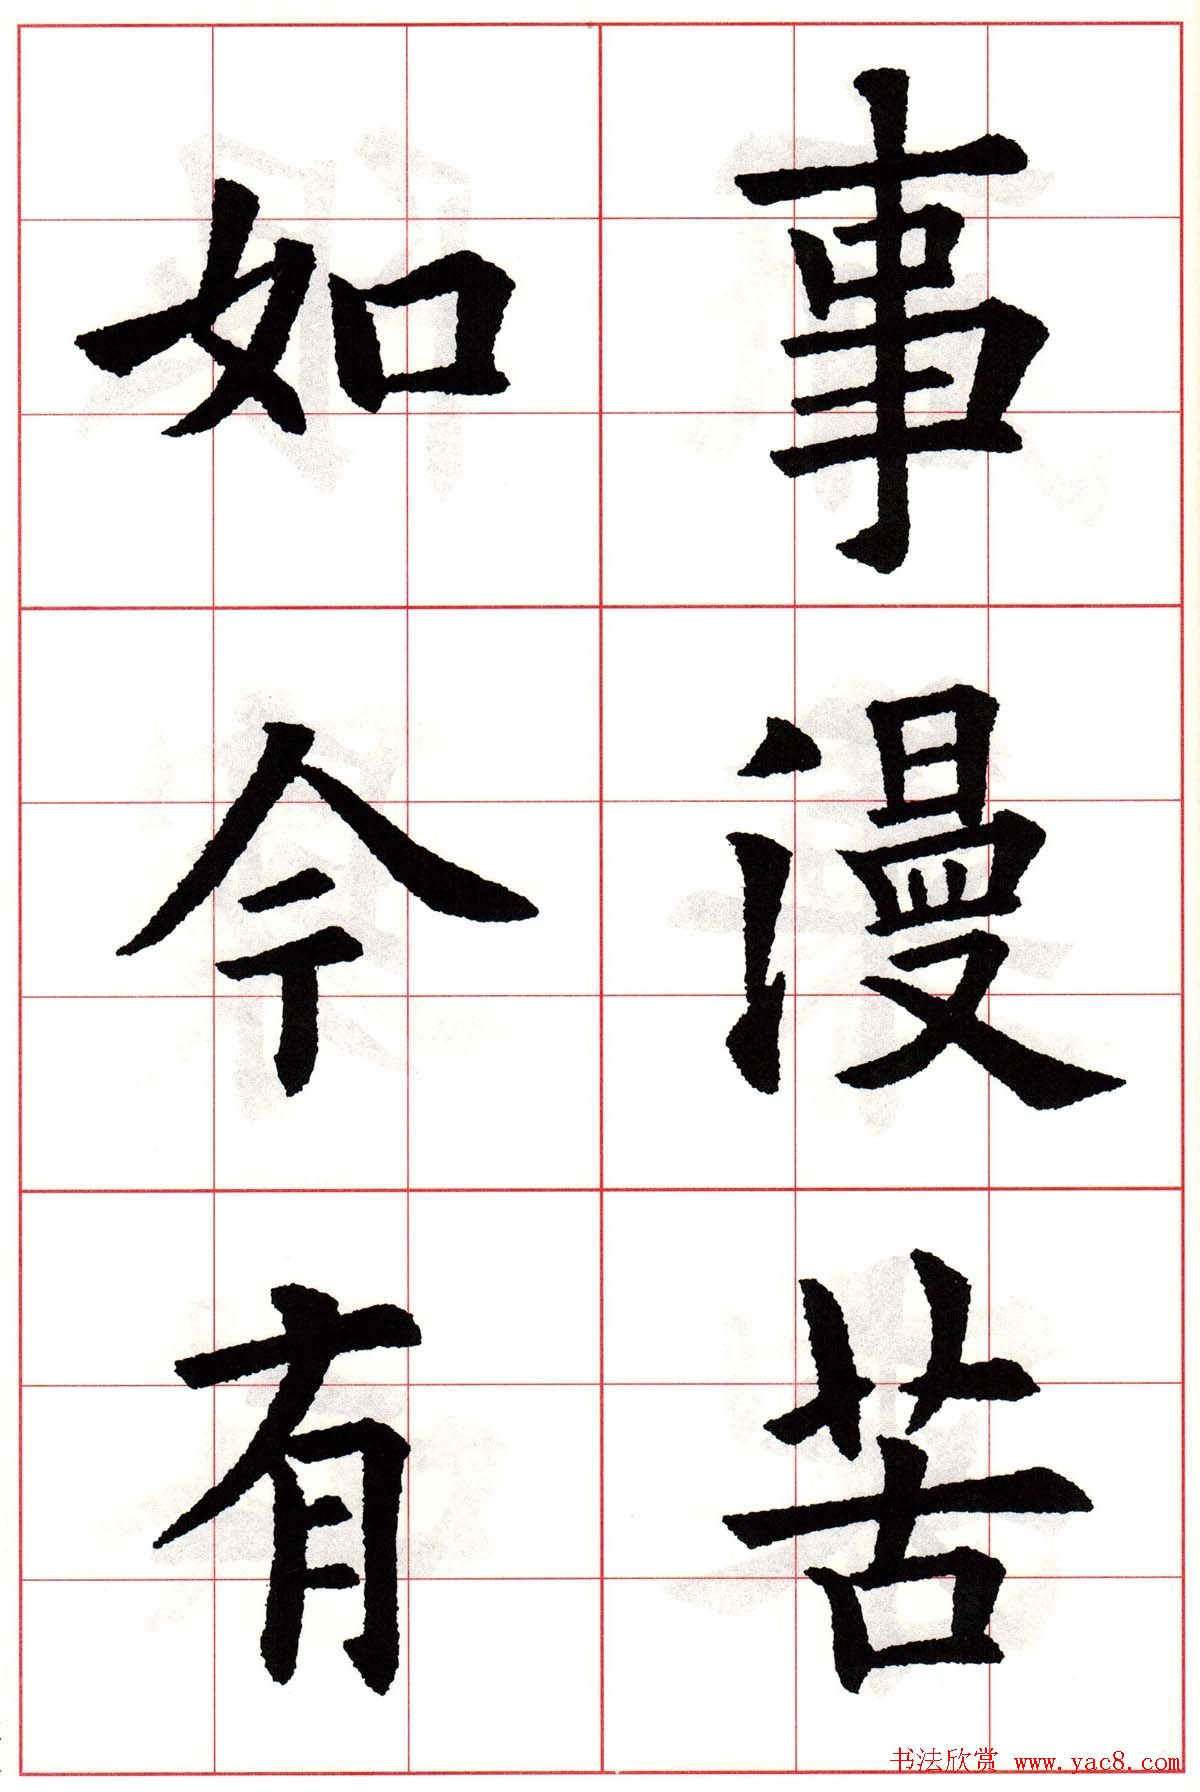 事漫苦
如今有
书法欣赏 www.yac8.com